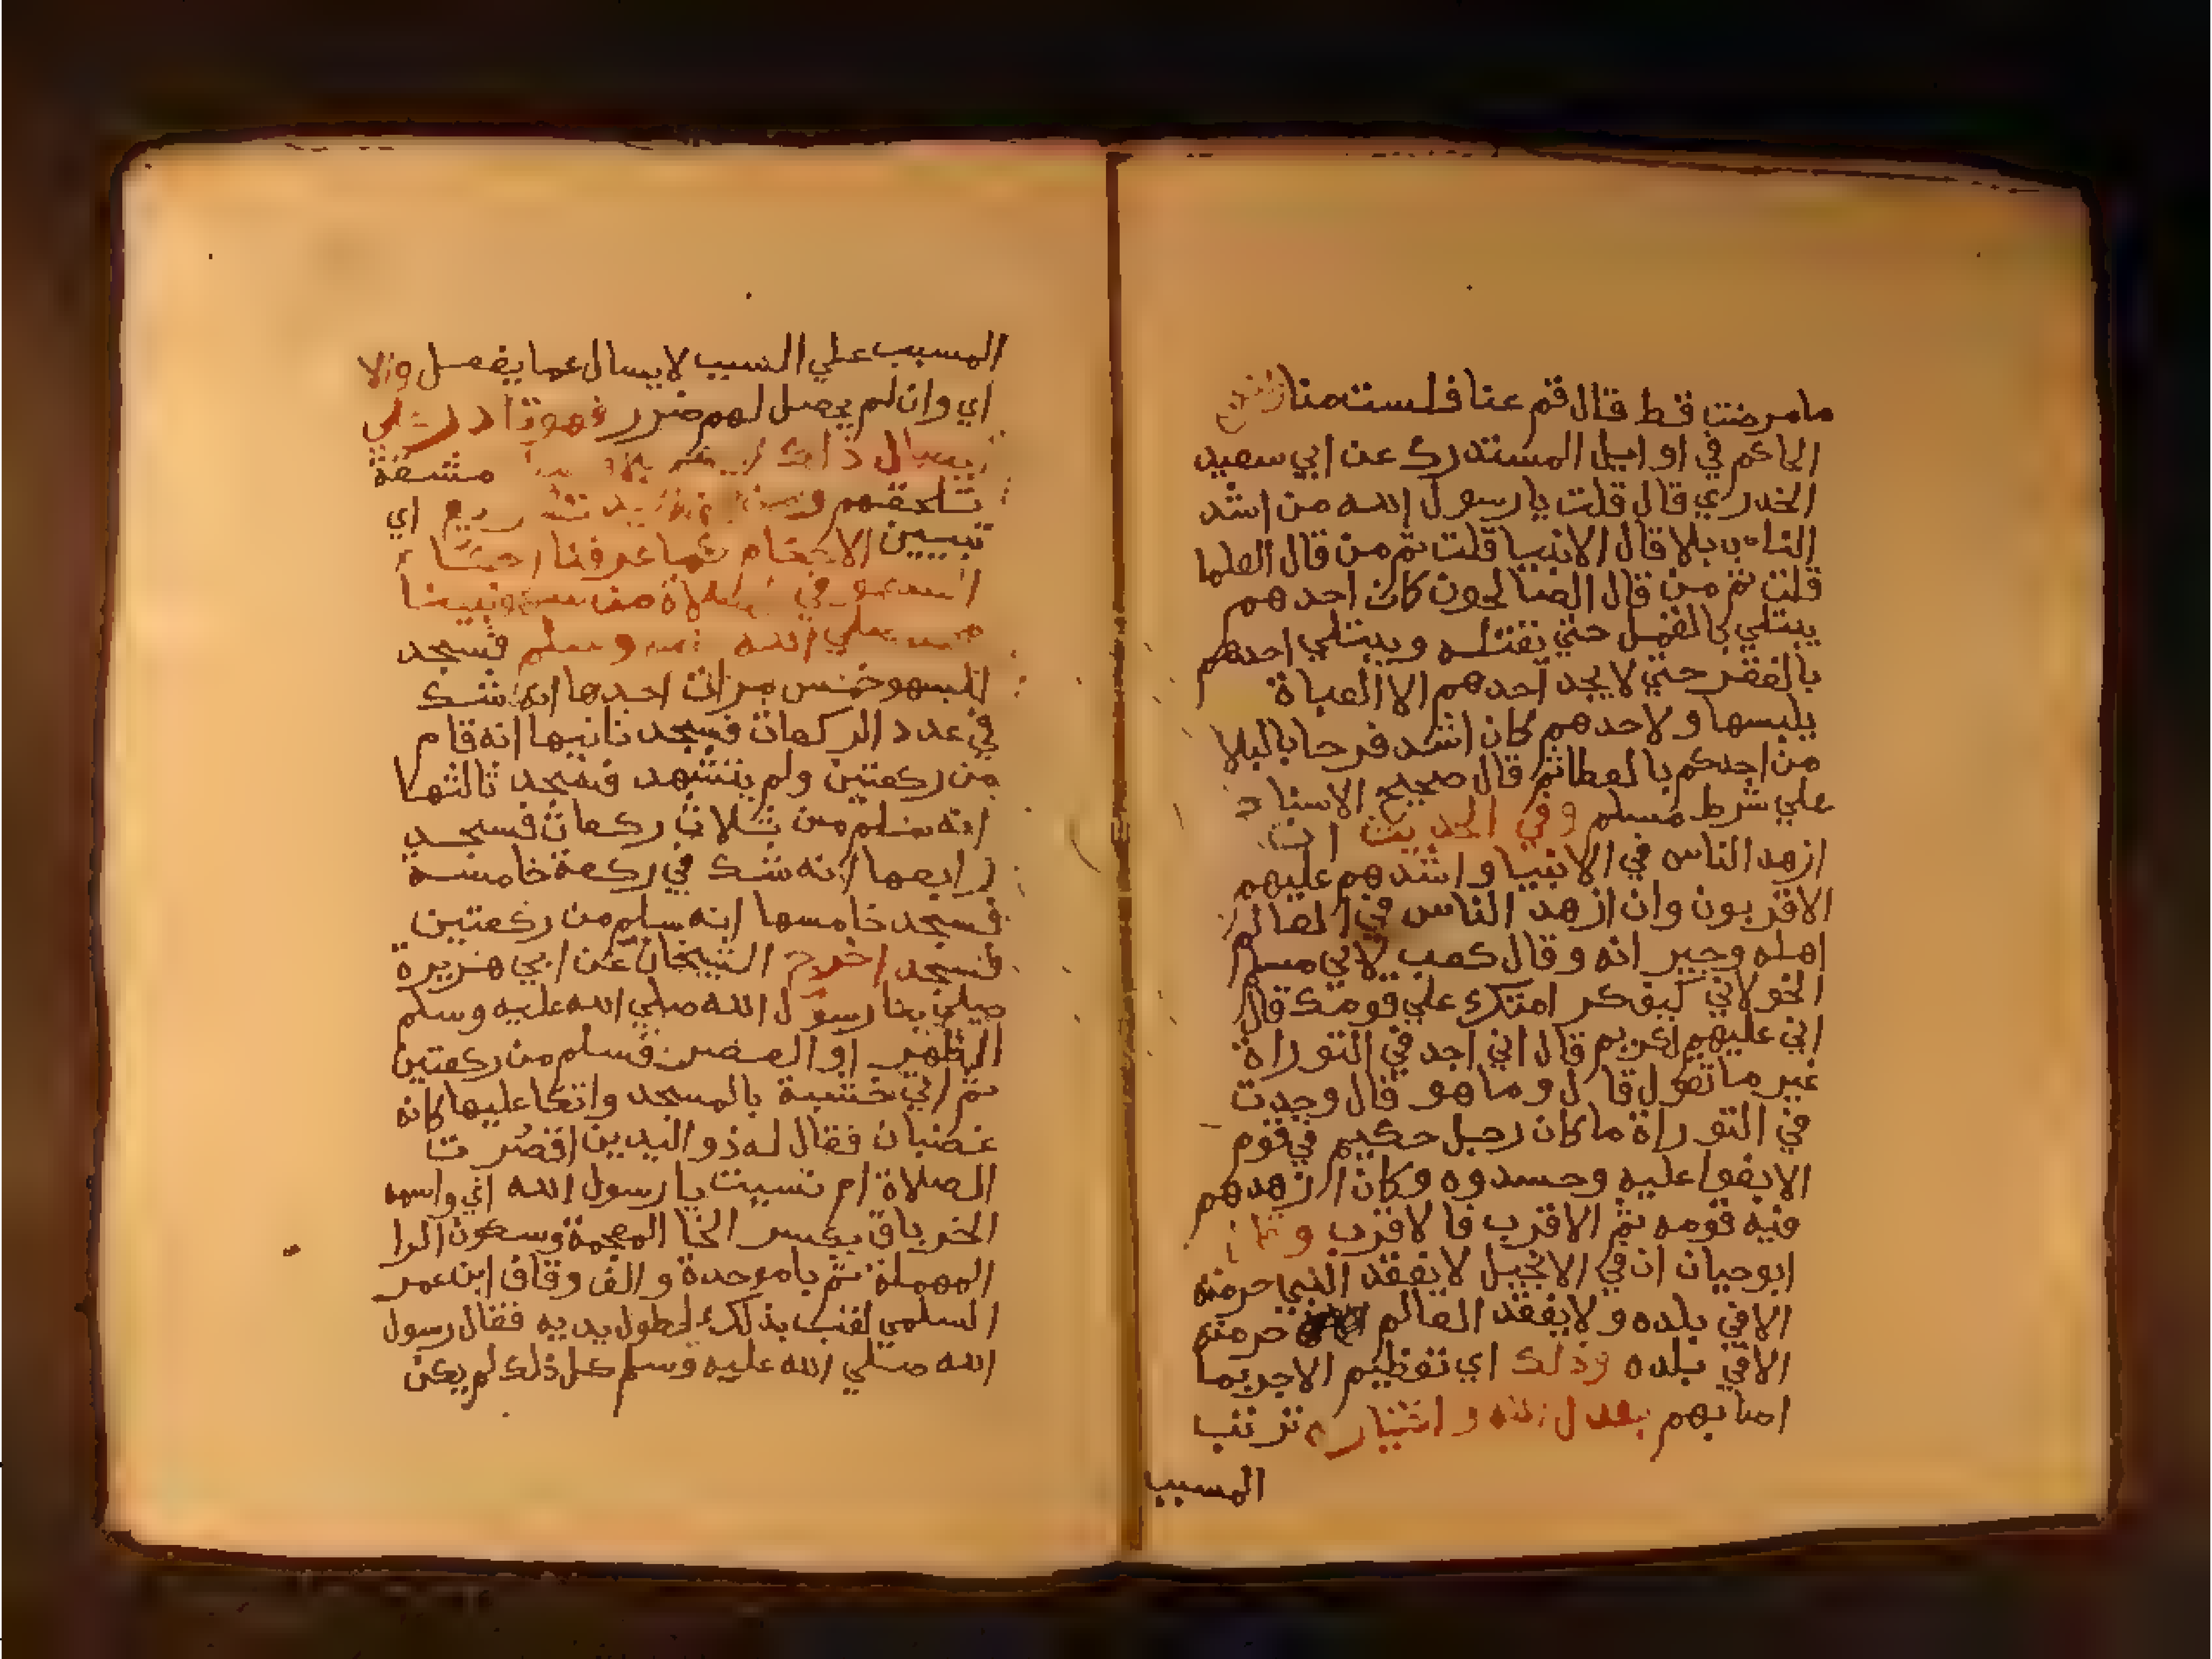 مامرضت قط قال قم عنا فلست منا
الحاكم في اوايل المستدرك عن ابي سعيد
الخدري قال قلت يا رسول الله من اشد
الناس بلا قال الانبيا قلت ثم من قال العلما
قلت ثم من قال الصالحون كان احدهم
يبتلي بالقمل حتي يقتله ويبتلي احدهم
بالفقر حتي لا يجد احدهم الا العباة
يلبسها ولاحدهم كان اشد فرحا بالبلا
من احدكم بالعطا ثم قال صحيح الاسناد
علي شرط مسلم وفي الحديث ان
ازهد الناس في الانبيا واشدهم عليهم
الاقربون وان ازهد الناس في العالم
اهله وجير انه وقال كعب لابي مسلم
الخولاني كيف كر امتك علي قومك قال
اني عليهم لكريم قال اني اجد في التوراة
غير ما تقول قال وما هو قال وجدت
في التوراة ما كان رجل حكيم في قوم
الا بغوا عليه وحسدوه وكان ازهدهم
فيه قومه ثم الاقرب فالاقرب
ابوحيان ان في الانجيل لا يفقد النبي حرمته
الا في بلده ولا يفقد العالم حرمته
الا في بلده وذلك اي تعظيم الاجر بما
اصابهم بعدل الله واختياره ترتب
المسبب
المسبب علي السبب لا يسال عما يفعل والا
اي وان لم يحصل لهم ضرر فهو قادر علي
ايصال ذلك مشقة
تلحقهم تشريع اي
تبيين الاحكام كما عرفنا احكام
السهو في الصلاة من سهو نبينا
صلي الله وسلم فسجد
للسهو خمس مرات احدها انه شك
في عدد الركعات فسجد ثانيها انه قام
من ركعتين ولم يتشهد فسجد ثالثها
انه سلم من ثلاث ركعات فسجد
رابعها انه شك في ركعة خامسة
فسجد خامسها انه سلم من ركعتين
فسجد اخرج الشيخان عن ابي هريرة
صلي بنا رسول الله صلي الله عليه وسلم
الظهر او العصر فسلم من ركعتين
ثم اتي خشبة بالمسجد واتكا عليها كانه
غضبان فقال له ذو اليدين اقصُرت
الصلاة ام نسيت يا رسول الله اي واسمه
الخرباق بكسر الخا المعجمة وسكون الرا
المهملة ثم با موحدة والف وقاف ابن عمر
السلمي لقب بذلك لطول يديه فقال رسول
الله صلي الله عليه وسلم كل ذلك لم يكن